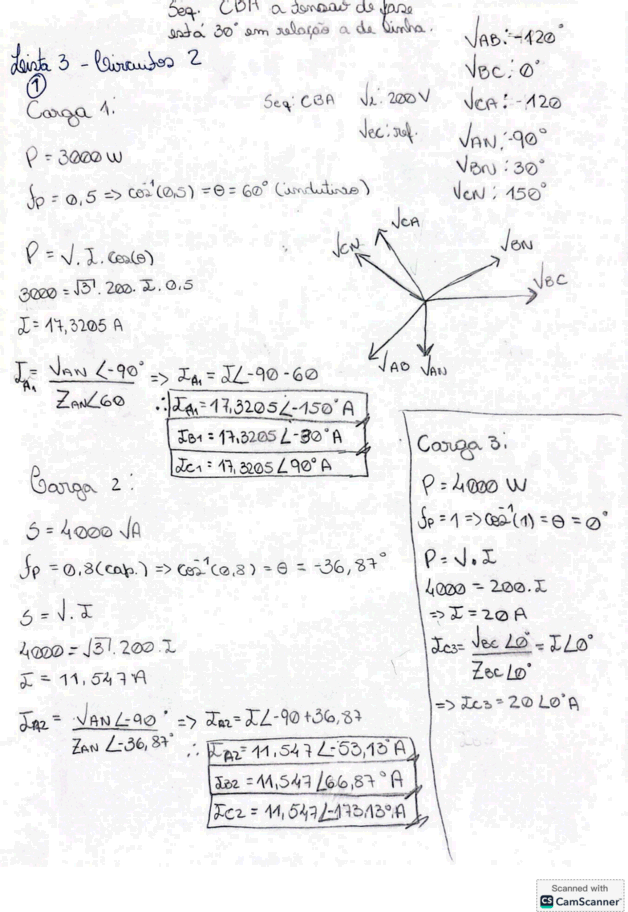 Seq. CBA a tensão de fase
está 30° em relação a de linha.
Lista 3 - Circuitos 2
①
Carga 1:
Seq: CBA VL: 200V
Vbc: ref.
VAB: -120°
VBC: 0°
VCA: -120
VAN: -90°
VBN: 30°
VCN: 150°
P = 3000 W
fp = 0,5 => cos⁻¹(0,5) = θ = 60° (indutivo)
P = V.I.cos(θ)
3000 = √3.200.I.0,5
I = 17,3205 A
VCN
VCA
VBN
VBC
VAB
VAN
IA1 = VAN ∠-90° / ZAN∠60 => IA1 = I∠-90-60
∴ IA1 = 17,3205∠-150° A
IB1 = 17,3205∠-30° A
IC1 = 17,3205∠90° A
Carga 2:
S = 4000 VA
fp = 0,8 (cap.) => cos⁻¹(0,8) = θ = -36,87°
S = V.I
4000 = √3.200.I
I = 11,547 A
IA2 = VAN∠-90° / ZAN∠-36,87° => IA2 = I∠-90+36,87
∴ IA2 = 11,547∠-53,13° A
IB2 = 11,547∠66,87° A
IC2 = 11,547∠-173,13° A
Carga 3:
P = 4000 W
fp = 1 => cos⁻¹(1) = θ = 0°
P = V.I
4000 = 200.I
=> I = 20 A
IC3 = VBC∠0° / ZBC∠0° = I∠0°
=> IC3 = 20∠0° A
Scanned with
CS CamScanner